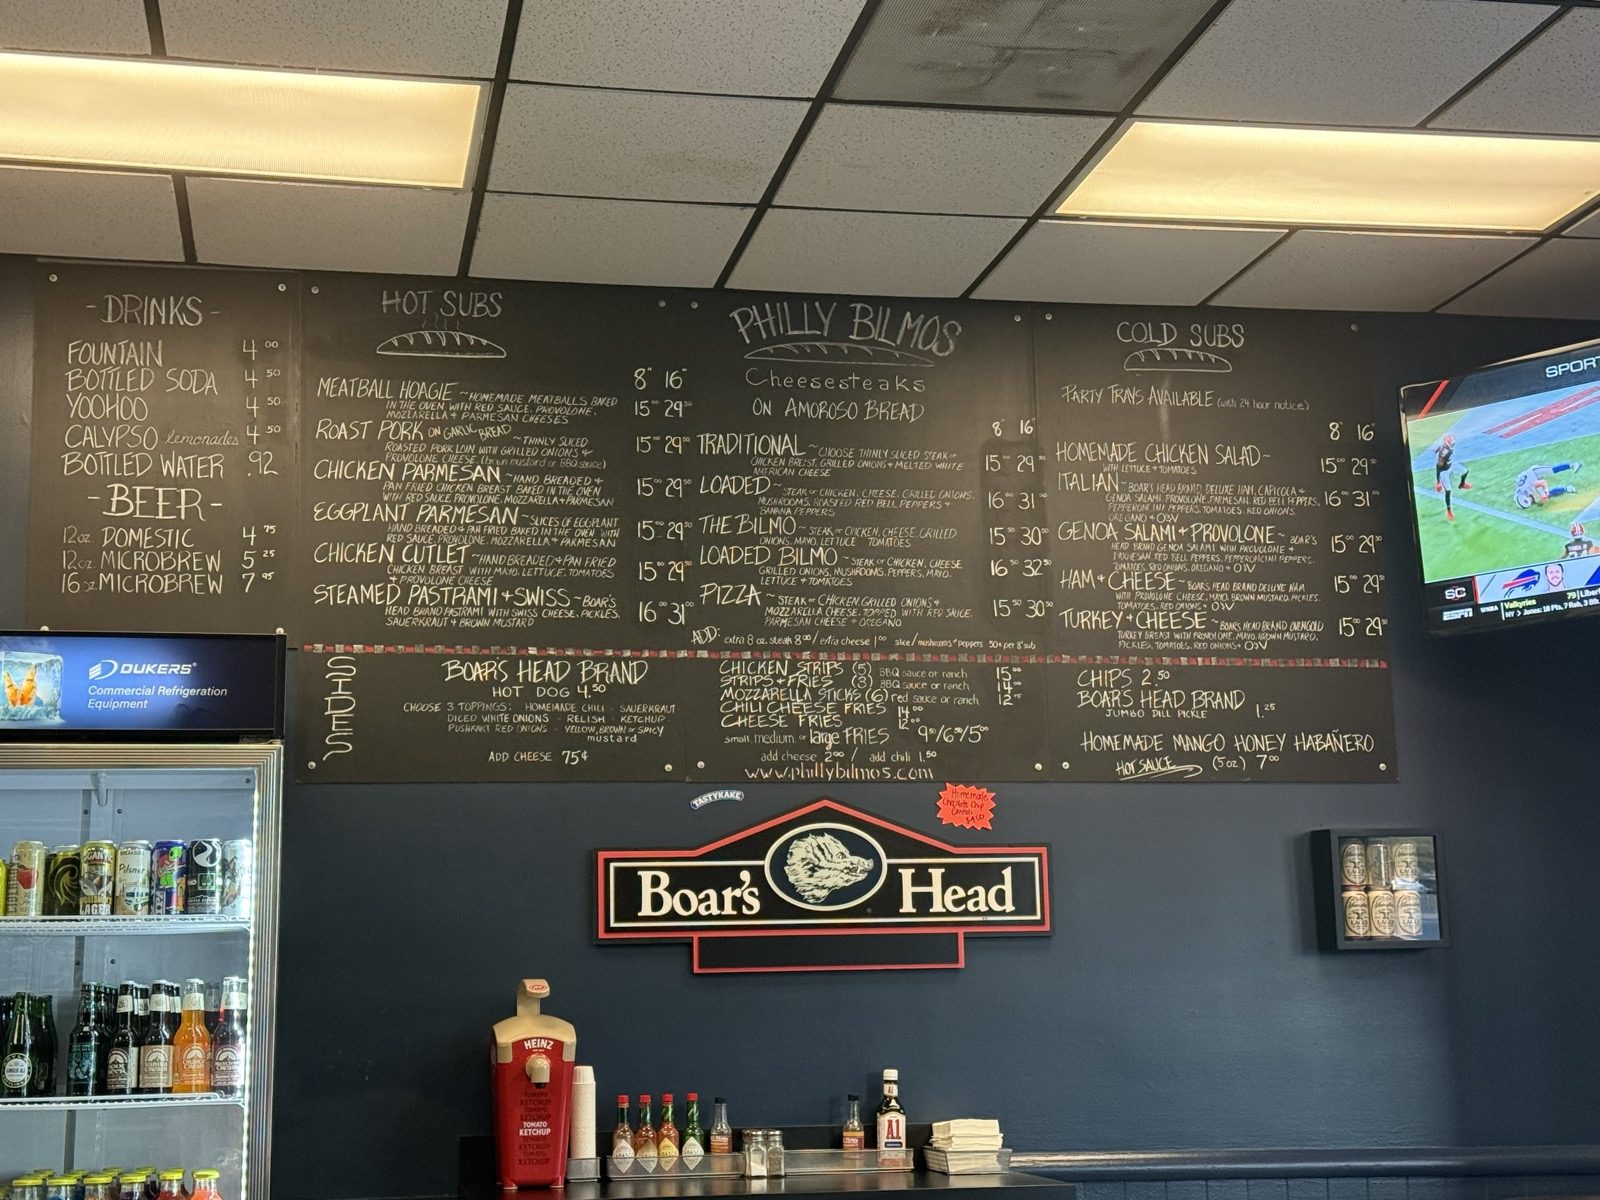 - DRINKS -
FOUNTAIN 4 00
BOTTLED SODA 4 50
YOOHOO 4 50
CALYPSO lemonades 4 50
BOTTLED WATER .92
- BEER -
12oz DOMESTIC 4 75
12oz. MICROBREW 5 25
16oz MICROBREW 7 95
HOT SUBS
8" 16"
MEATBALL HOAGIE ~ HOMEMADE MEATBALLS BAKED
IN THE OVEN WITH RED SAUCE, PROVOLONE,
MOZZARELLA + PARMESAN CHEESES
15 29
ROAST PORK ON GARLIC BREAD ~ THINLY SLICED
ROASTED PORK LOIN WITH GRILLED ONIONS +
PROVOLONE CHEESE (brown mustard or BBQ sauce)
15 29
CHICKEN PARMESAN ~ HAND BREADED +
PAN FRIED CHICKEN BREAST BAKED IN THE OVEN
WITH RED SAUCE PROVOLONE, MOZZARELLA + PARMESAN
15 29
EGGPLANT PARMESAN ~ SLICES OF EGGPLANT
HAND BREADED + PAN FRIED BAKED IN THE OVEN WITH
RED SAUCE, PROVOLONE, MOZZARELLA + PARMESAN
15 29
CHICKEN CUTLET ~ HAND BREADED + PAN FRIED
CHICKEN BREAST WITH MAYO, LETTUCE, TOMATOES
+ PROVOLONE CHEESE
15 29
STEAMED PASTRAMI + SWISS ~ BOAR'S
HEAD BRAND PASTRAMI WITH SWISS CHEESE, PICKLES,
SAUERKRAUT + BROWN MUSTARD
16 31
PHILLY BILMOS
Cheesesteaks
ON AMOROSO BREAD
8" 16"
TRADITIONAL ~ CHOOSE THINLY SLICED STEAK OR
CHICKEN BREAST, GRILLED ONIONS + MELTED WHITE
AMERICAN CHEESE
15 29
LOADED ~ STEAK OR CHICKEN, CHEESE, GRILLED ONIONS,
MUSHROOMS, ROASTED RED BELL PEPPERS +
BANANA PEPPERS
16 31
THE BILMO ~ STEAK OR CHICKEN, CHEESE, GRILLED
ONIONS, MAYO, LETTUCE + TOMATOES
15 50 30
LOADED BILMO ~ STEAK OR CHICKEN, CHEESE
GRILLED ONIONS, MUSHROOMS, PEPPERS, MAYO,
LETTUCE + TOMATOES
16 50 32 50
PIZZA ~ STEAK OR CHICKEN, GRILLED ONIONS +
MOZZARELLA CHEESE TOPPED WITH RED SAUCE,
PARMESAN CHEESE + OREGANO
15 50 30 50
ADD: extra 8 oz. steak 8 00 / extra cheese 1 00 slice / mushrooms + peppers 50¢ per 8" sub
COLD SUBS
PARTY TRAYS AVAILABLE (with 24 hour notice)
8" 16"
HOMEMADE CHICKEN SALAD ~
WITH LETTUCE + TOMATOES
15 29
ITALIAN ~ BOAR'S HEAD BRAND DELUXE HAM, CAPICOLA +
GENOA SALAMI, PROVOLONE, PARMESAN, RED BELL PEPPERS,
PEPPERONCINI PEPPERS, TOMATOES, RED ONIONS,
OREGANO + O+V
16 31
GENOA SALAMI + PROVOLONE ~ BOAR'S
HEAD BRAND GENOA SALAMI WITH PROVOLONE +
PARMESAN, RED BELL PEPPERS, PEPPERONCINI PEPPERS,
TOMATOES, RED ONIONS, OREGANO + O+V
15 29
HAM + CHEESE ~ BOARS HEAD BRAND DELUXE HAM
WITH PROVOLONE CHEESE, MAYO, BROWN MUSTARD, PICKLES,
TOMATOES, RED ONIONS + O+V
15 29
TURKEY + CHEESE ~ BOARS HEAD BRAND OVENGOLD
TURKEY BREAST WITH PROVOLONE, MAYO, BROWN MUSTARD,
PICKLES, TOMATOES, RED ONIONS + O+V
15 29
SIDES
BOAR'S HEAD BRAND
HOT DOG 4.50
CHOOSE 3 TOPPINGS: HOMEMADE CHILI - SAUERKRAUT
DICED WHITE ONIONS - RELISH - KETCHUP
PUSHKART RED ONIONS - YELLOW, BROWN or SPICY
mustard
ADD CHEESE 75¢
CHICKEN STRIPS (5) BBQ sauce or ranch 15 00
STRIPS + FRIES (3) BBQ sauce or ranch 14 00
MOZZARELLA STICKS (6) red sauce or ranch 12
CHILI CHEESE FRIES 14 00
CHEESE FRIES 12 00
small, medium, or large FRIES 9 50/6 50/5 00
add cheese 2 00 / add chili 1.50
www.phillybilmos.com
CHIPS 2.50
BOAR'S HEAD BRAND
JUMBO DILL PICKLE 1.25
HOMEMADE MANGO HONEY HABAÑERO
HOT SAUCE (5oz) 7 00
SPORT
SC
ESPN
WNBA
Valkyries 79
DUKERS
Commercial Refrigeration
Equipment
TASTYKAKE
Homemade
Chocolate Chip
Cannoli
$4.50
Boar's Head
Pilsner
LAGER
HEINZ
TOMATO
KETCHUP
A1